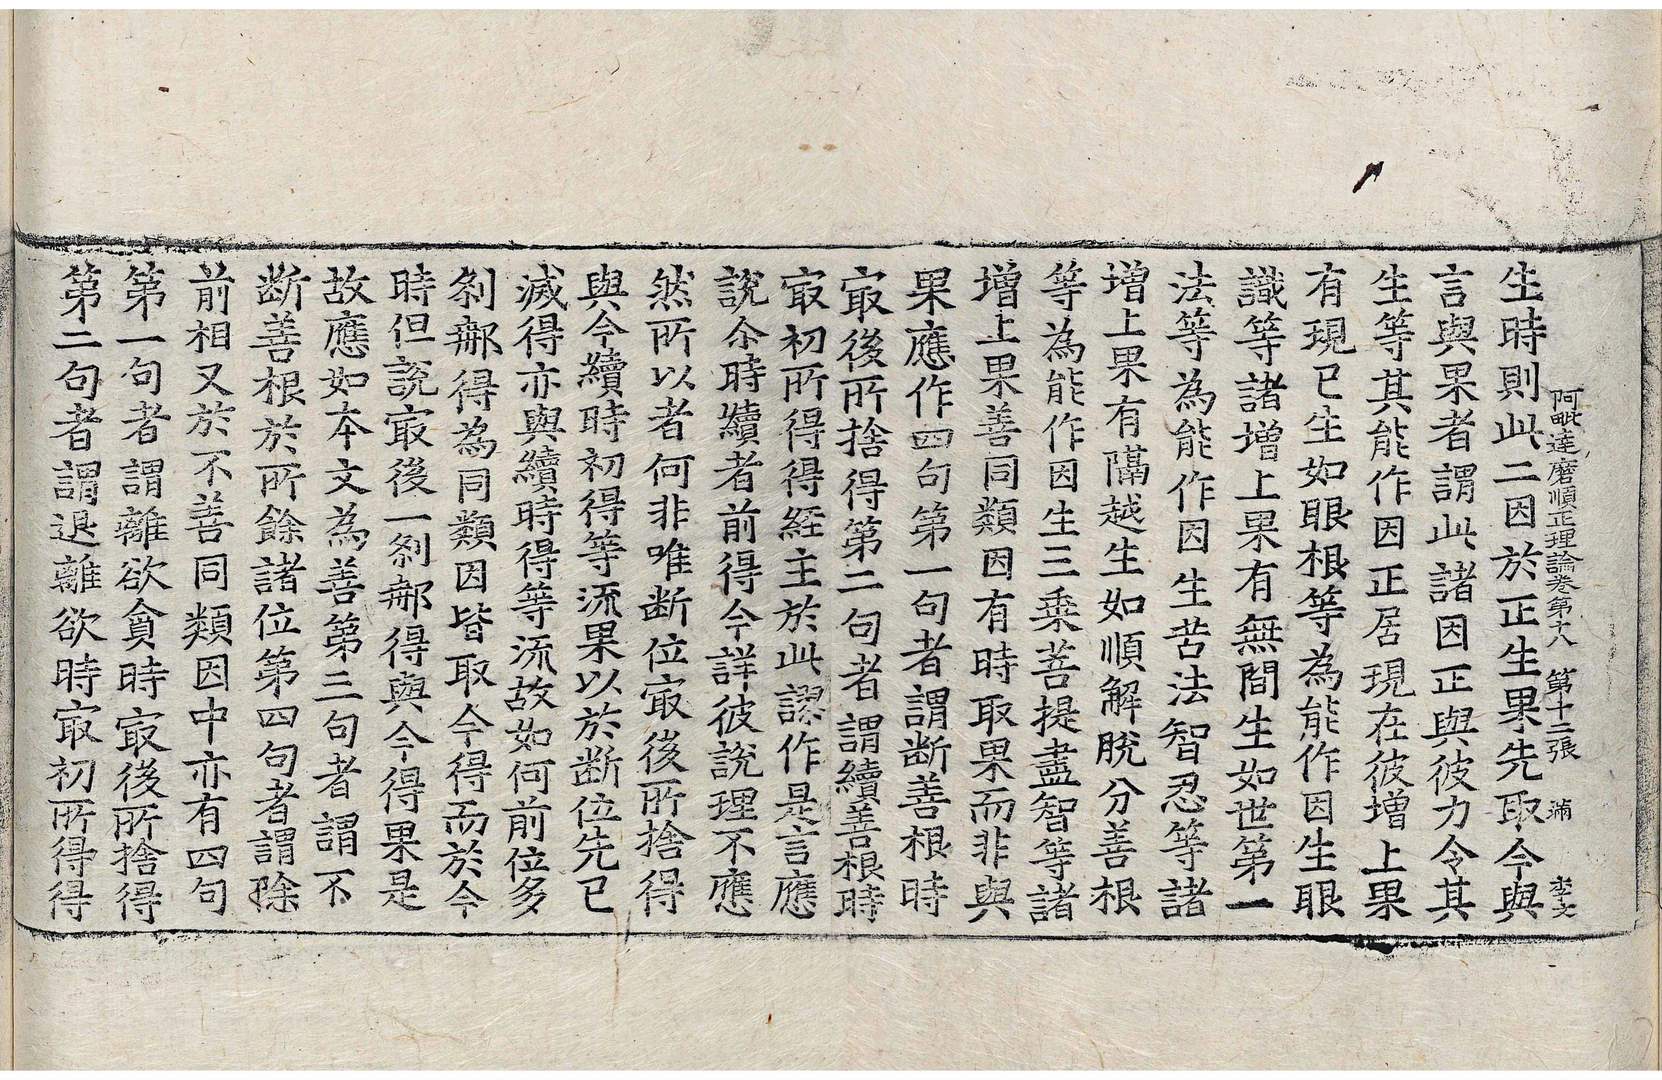 阿毗達磨順正理論卷第十八　第十三張　滿　李文
生時則此二因於正生果先取今與
言與果者謂此諸因正與彼力令其
生等其能作因正居現在彼增上果
有現已生如眼根等為能作因生眼
識等諸增上果有無間生如世第一
法等為能作因生苦法智忍等諸
增上果有隔越生如順解脫分善根
等為能作因生三乘菩提盡智等諸
增上果善同類因有時取果而非與
果應作四句第一句者謂斷善根時
㝡後所捨得第二句者謂續善根時
㝡初所得得経主於此謬作是言應
說尒時續者前得今詳彼說理不應
然所以者何非唯断位㝡後所捨得
與今續時初得等流果以於断位先已
滅得亦與續時得等流故如何前位多
刹那得為同類因皆取今得而於今
時但說㝡後一刹那得與今得果是
故應如本文為善第三句者謂不
断善根於所餘諸位第四句者謂除
前相又於不善同類因中亦有四句
第一句者謂離欲貪時㝡後所捨得
第二句者謂退離欲時㝡初所得得